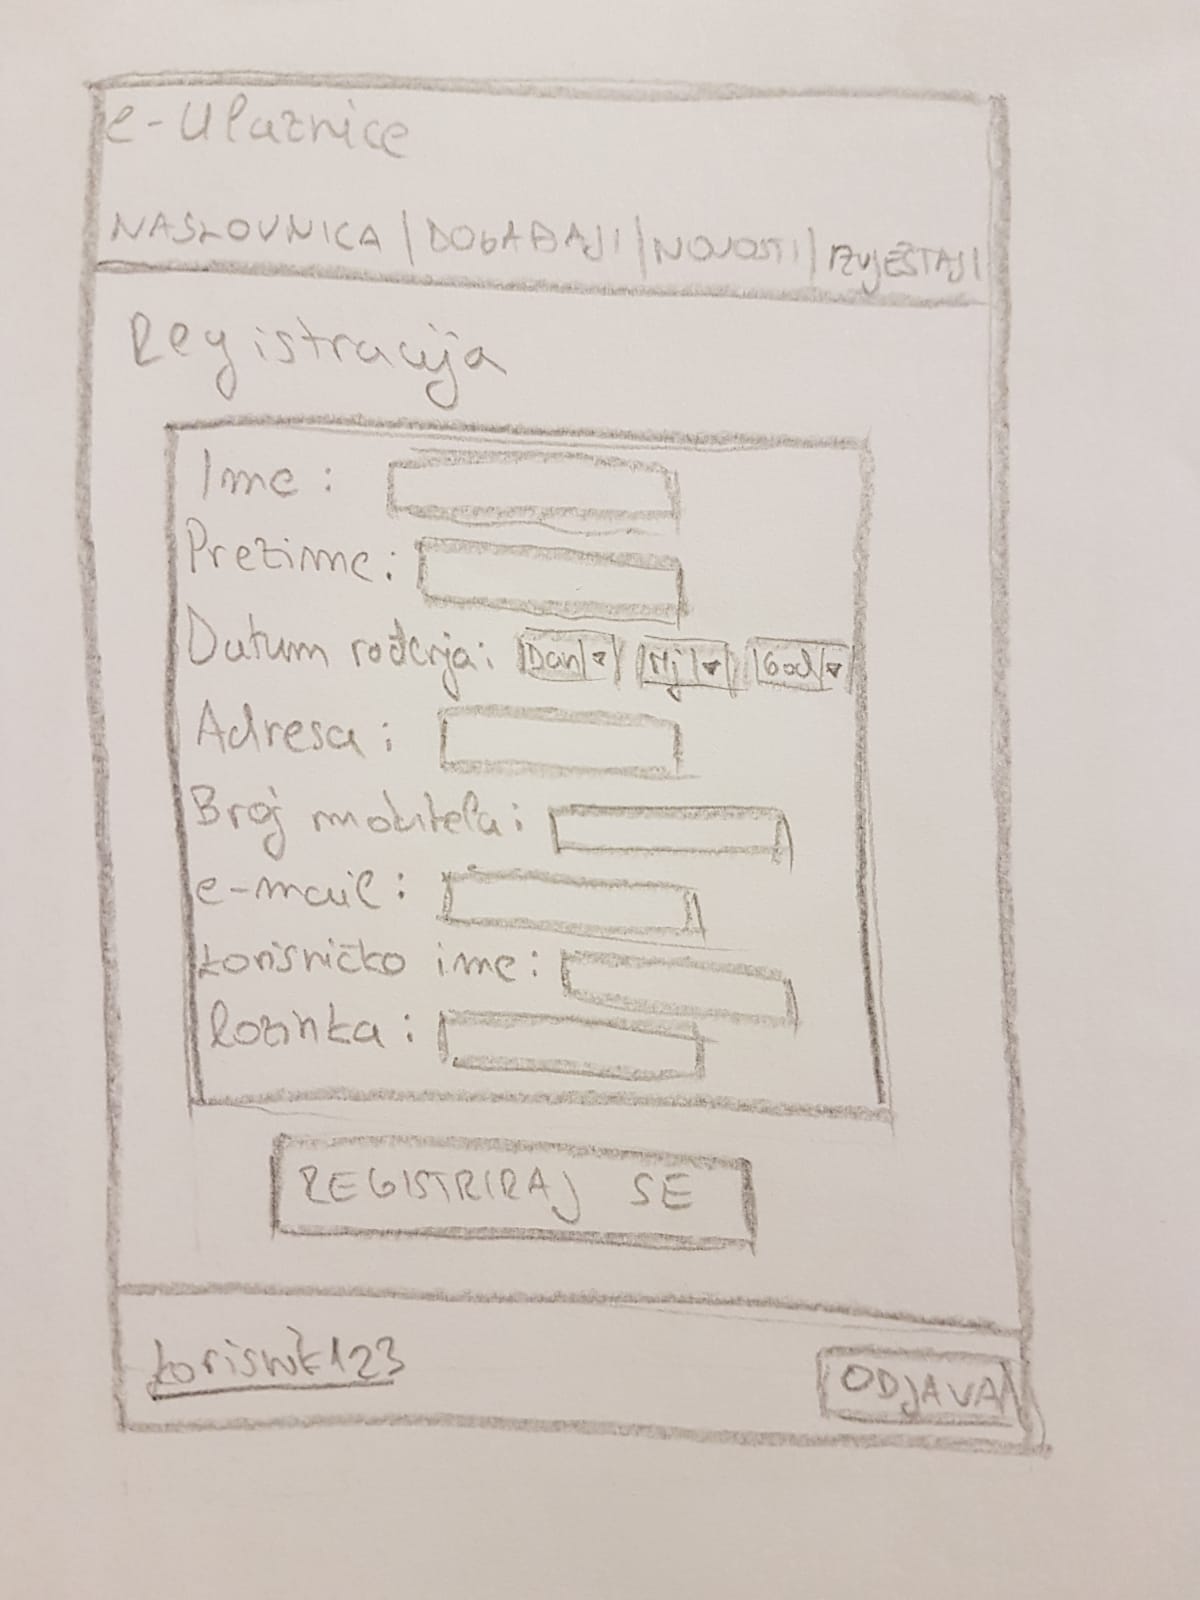 e-Ulaznice
NASLOVNICA | DOGAĐAJI | NOVOSTI | IZVJEŠTAJI
Registracija
Ime:
Prezime:
Datum rođenja: Dan Mj God
Adresa:
Broj mobitela:
e-mail:
korisničko ime:
Lozinka:
REGISTRIRAJ SE
korisnik123
ODJAVA